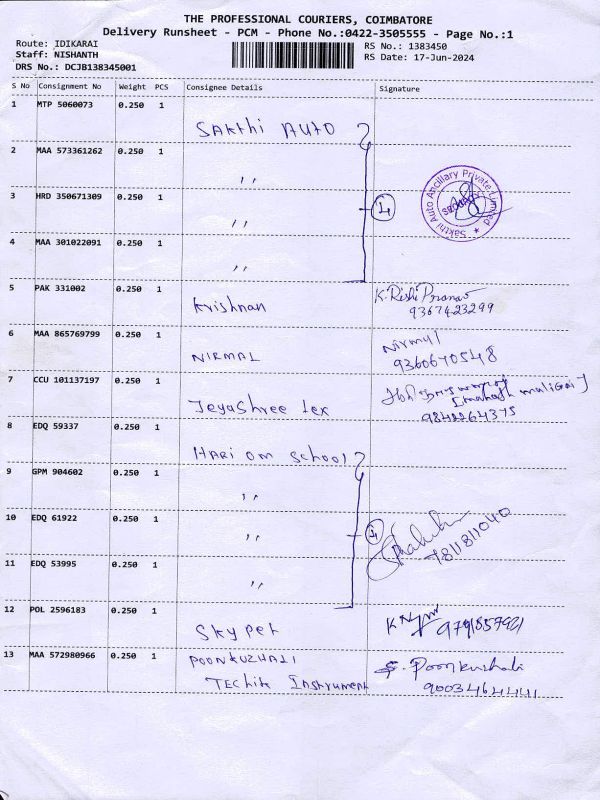 THE PROFESSIONAL COURIERS, COIMBATORE
Delivery Runsheet - PCM - Phone No.:0422-3505555 - Page No.:1
Route: IDIKARAI
Staff: NISHANTH
DRS No.: DCJB138345001
RS No.: 1383450
RS Date: 17-Jun-2024
S No Consignment No Weight PCS Consignee Details Signature
1 MTP 5060073 0.250 1
Sakthi Auto
2 MAA 573361262 0.250 1
,,
3 HRD 350671309 0.250 1
,,
4
Sakthi Auto Ancillary Private Limited
4 MAA 301022091 0.250 1
,,
5 PAK 331002 0.250 1
Krishnan K. Rishi Pranav
9367423299
6 MAA 865769799 0.250 1
NIRMAL Nirmal
9360670548
7 CCU 101137197 0.250 1
Jeyashree Lex
9842264375
8 EDQ 59337 0.250 1
HARI OM School
9 GPM 904602 0.250 1
,,
10 EDQ 61922 0.250 1
,, 4
7811811040
11 EDQ 53995 0.250 1
,,
12 POL 2596183 0.250 1
Skypet
13 MAA 572980966 0.250 1
POONKUZHALI
Techite Instrument
S. Poonkuzhali
9003464441